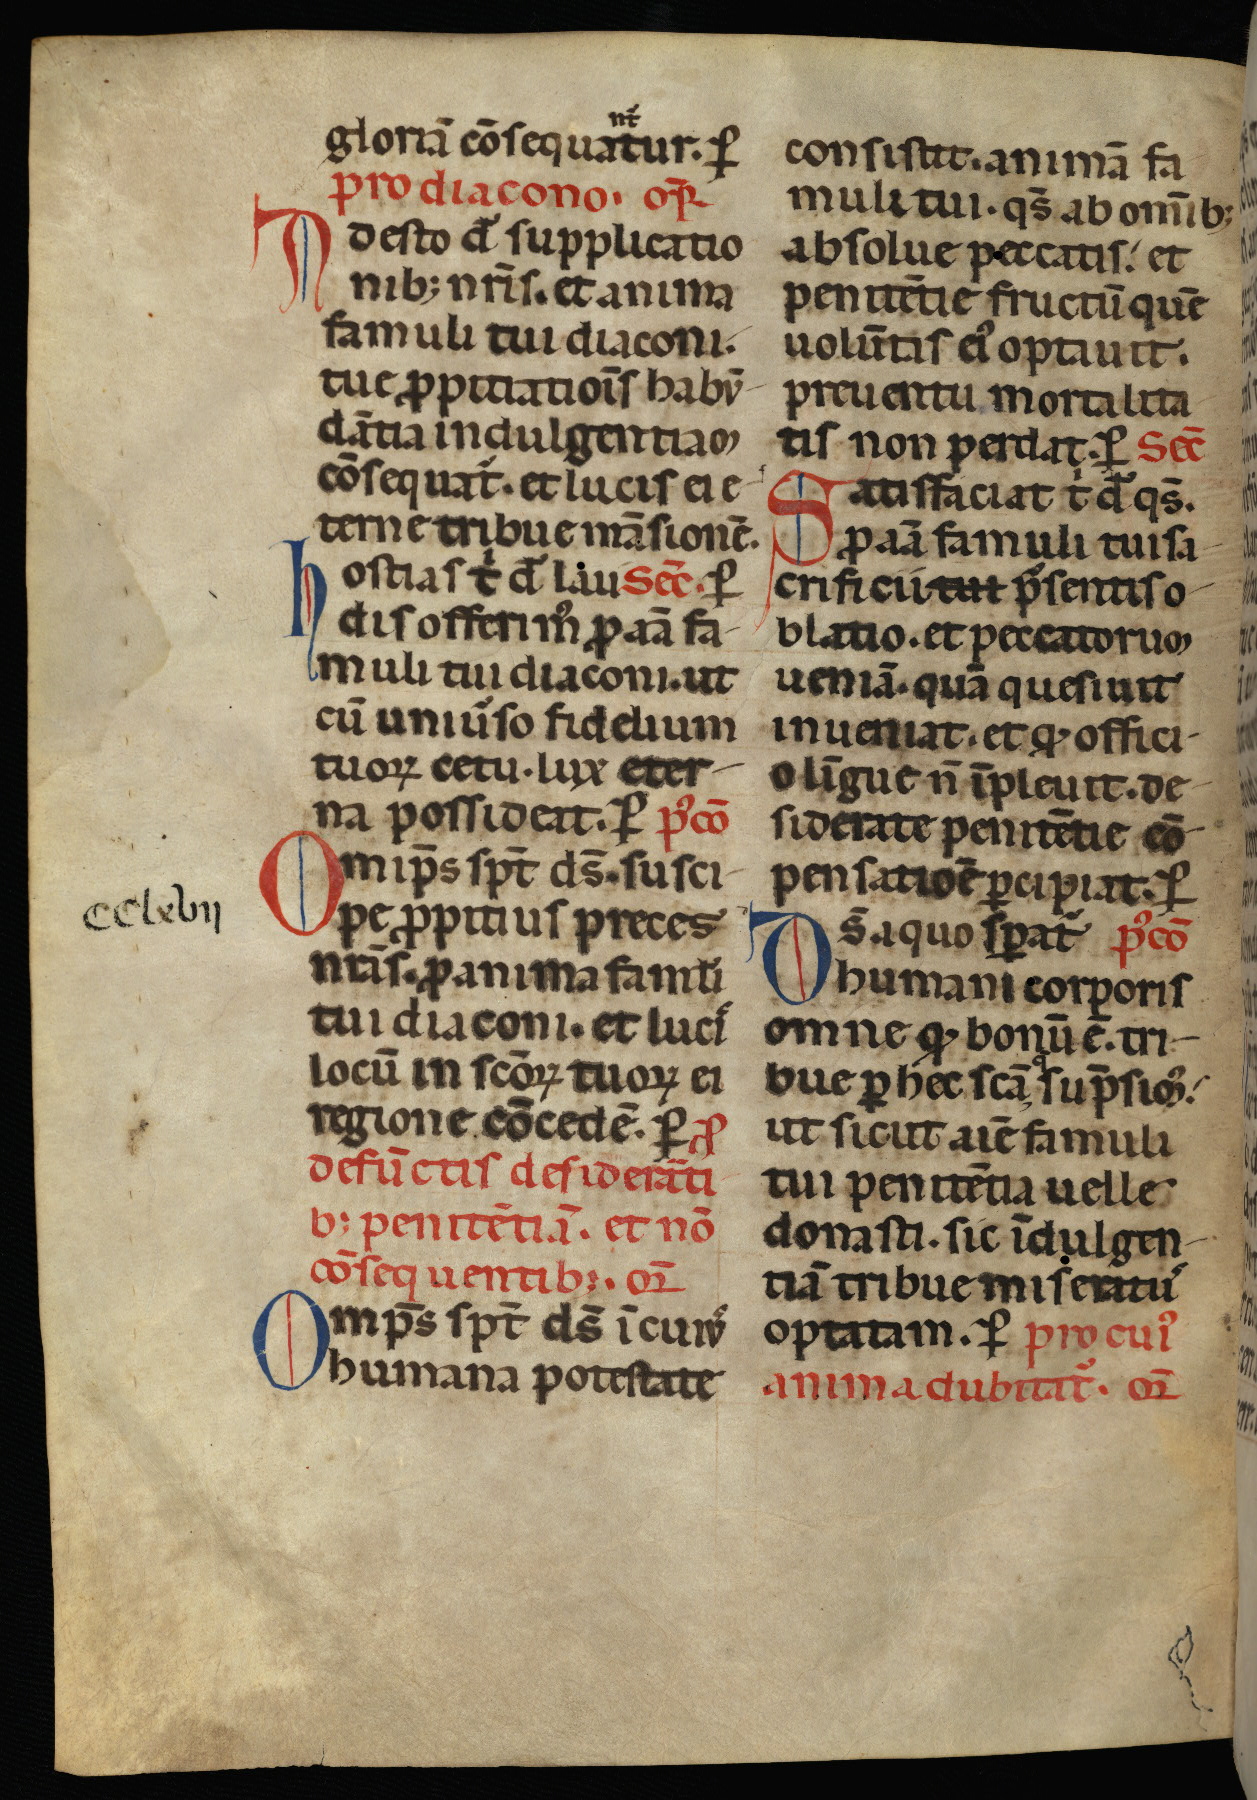 gloriā cōsequatur. ꝑ
nt᷑
pro diacono. or̄
Adesto d̄ supplicatio
nib; nr̄is. et anima
famuli tui diaconi.
tue ꝓpitiatiōis habū
dātia indulgentiam
cōsequat᷑. et lucis ei e
terne tribue māsionē.
hostias t̄ d̄ lau Sec̄. ꝑ
dis offerim᷒ ꝓ aīa fa
muli tui diaconi. ut
cū uniu᷑so fidelium
tuoꝝ cetu. lux eter
na possideat. ꝑ p᷒cō
Omip̄s sp̄t ds̄. susci
pe ꝓpitius preces
nr̄is. ꝓ anima famli
tui diaconi. et luci᷒
locū in scōꝝ tuoꝝ ei
regione cōcedē. ꝑ ꝓ
defūctis desiderāti
b; penitētiā. et nō
cōsequentib;. or̄
Omp̄s sp̄t ds̄ ī cui᷒
humana potestate
consistit. animā fa
muli tui. qs̄ ab om̄ib;
absolue peccatis. et
penitētie fructū quē
uolūtas ei᷒ optauit.
preuentu mortalita
tis non perdat. ꝑ Sec̄
Satisfaciat t̄ d̄ qs̄.
ꝓ aīa famuli tui sa
crificii tui p᷑sentis o
blatio. et peccatorum
ueniā. quā quesiuit
inueniat. et qđ offici
o līgue n̄ īpleuit. de
siderate penitētie cō
pensatiōē ꝑcipiat. ꝑ
Ds̄. a quo sꝑat᷑ p᷒cō
humani corporis
omne qđ bonū ē. tri
bue ꝑ hec scā, q̄ sup̄sim᷒.
ut sicut aīe famuli
tui penitētia uelle
donasti. sic īdulgen
tiā tribue miseratu᷑
optatam. ꝑ pro cui᷒
anima dubitat᷑. or̄
cclxvij